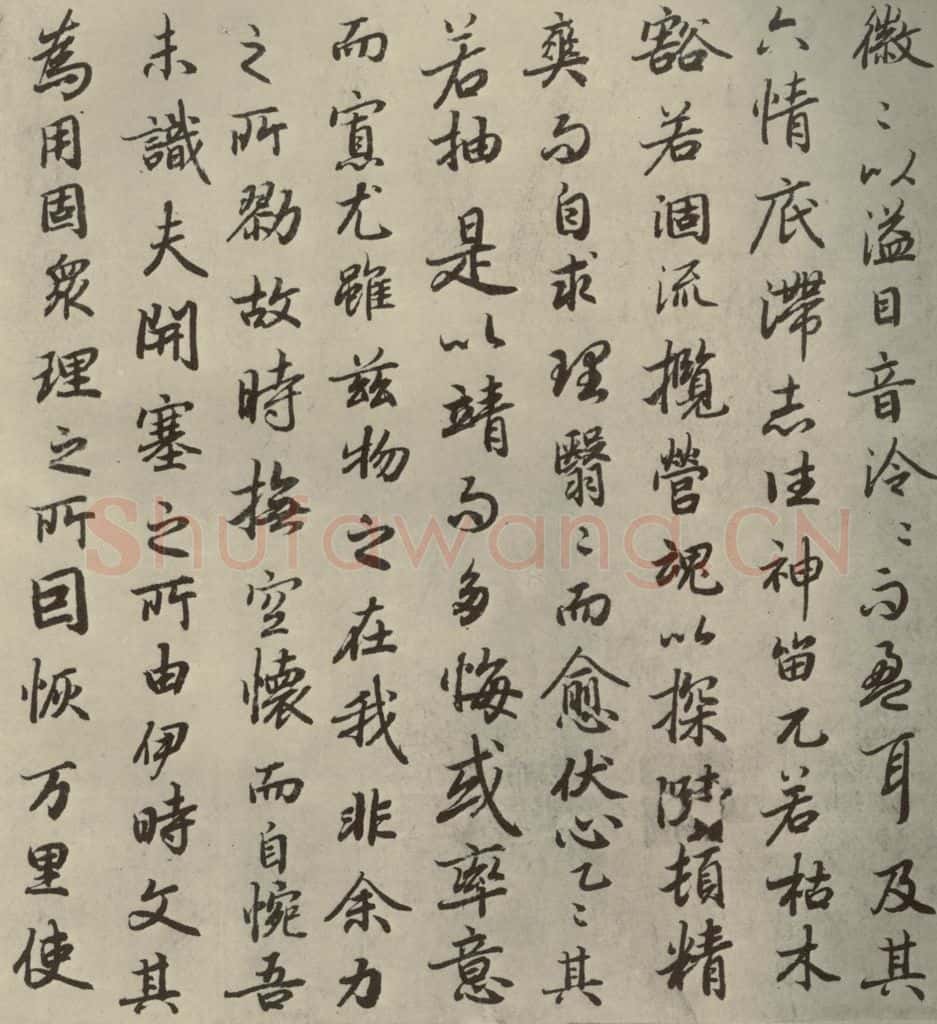 徽〻以溢目音泠〻而盈耳及其
六情底滯志往神留兀若枯木
豁若涸流攬營魂以探賾頓精
爽而自求理翳〻而愈伏心乙〻其
若抽是以靖而多悔或率意
而寡尤雖茲物之在我非余力
之所勠故時撫空懷而自惋吾
未識夫開塞之所由伊時文其
為用固眾理之所因恢万里使
Shufawang.CN